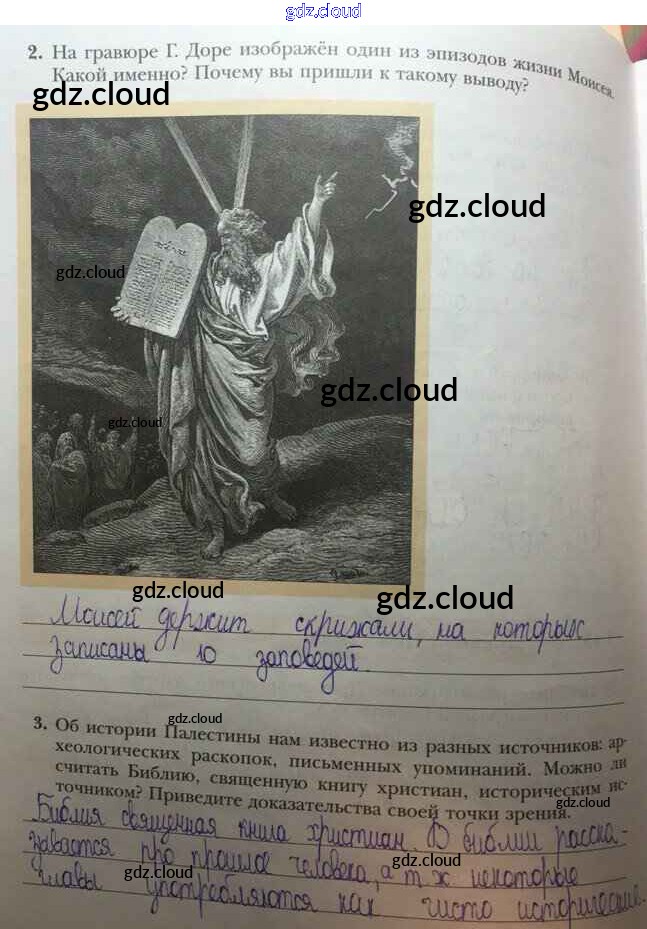 gdz.cloud
2. На гравюре Г. Доре изображён один из эпизодов жизни Моисея.
Какой именно? Почему вы пришли к такому выводу?
gdz.cloud
gdz.cloud
gdz.cloud
gdz.cloud
gdz.cloud
gdz.cloud
gdz.cloud
Моисей держит скрижали, на которых
записаны 10 заповедей.
gdz.cloud
3. Об истории Палестины нам известно из разных источников: ар-
хеологических раскопок, письменных упоминаний. Можно ли
считать Библию, священную книгу христиан, историческим ис-
точником? Приведите доказательства своей точки зрения.
gdz.cloud
Библия священная книга христиан. В библии расска-
зывается про прошлое человека, а т ж некоторые
gdz.cloud
главы употребляются как чисто исторические.
gdz.cloud